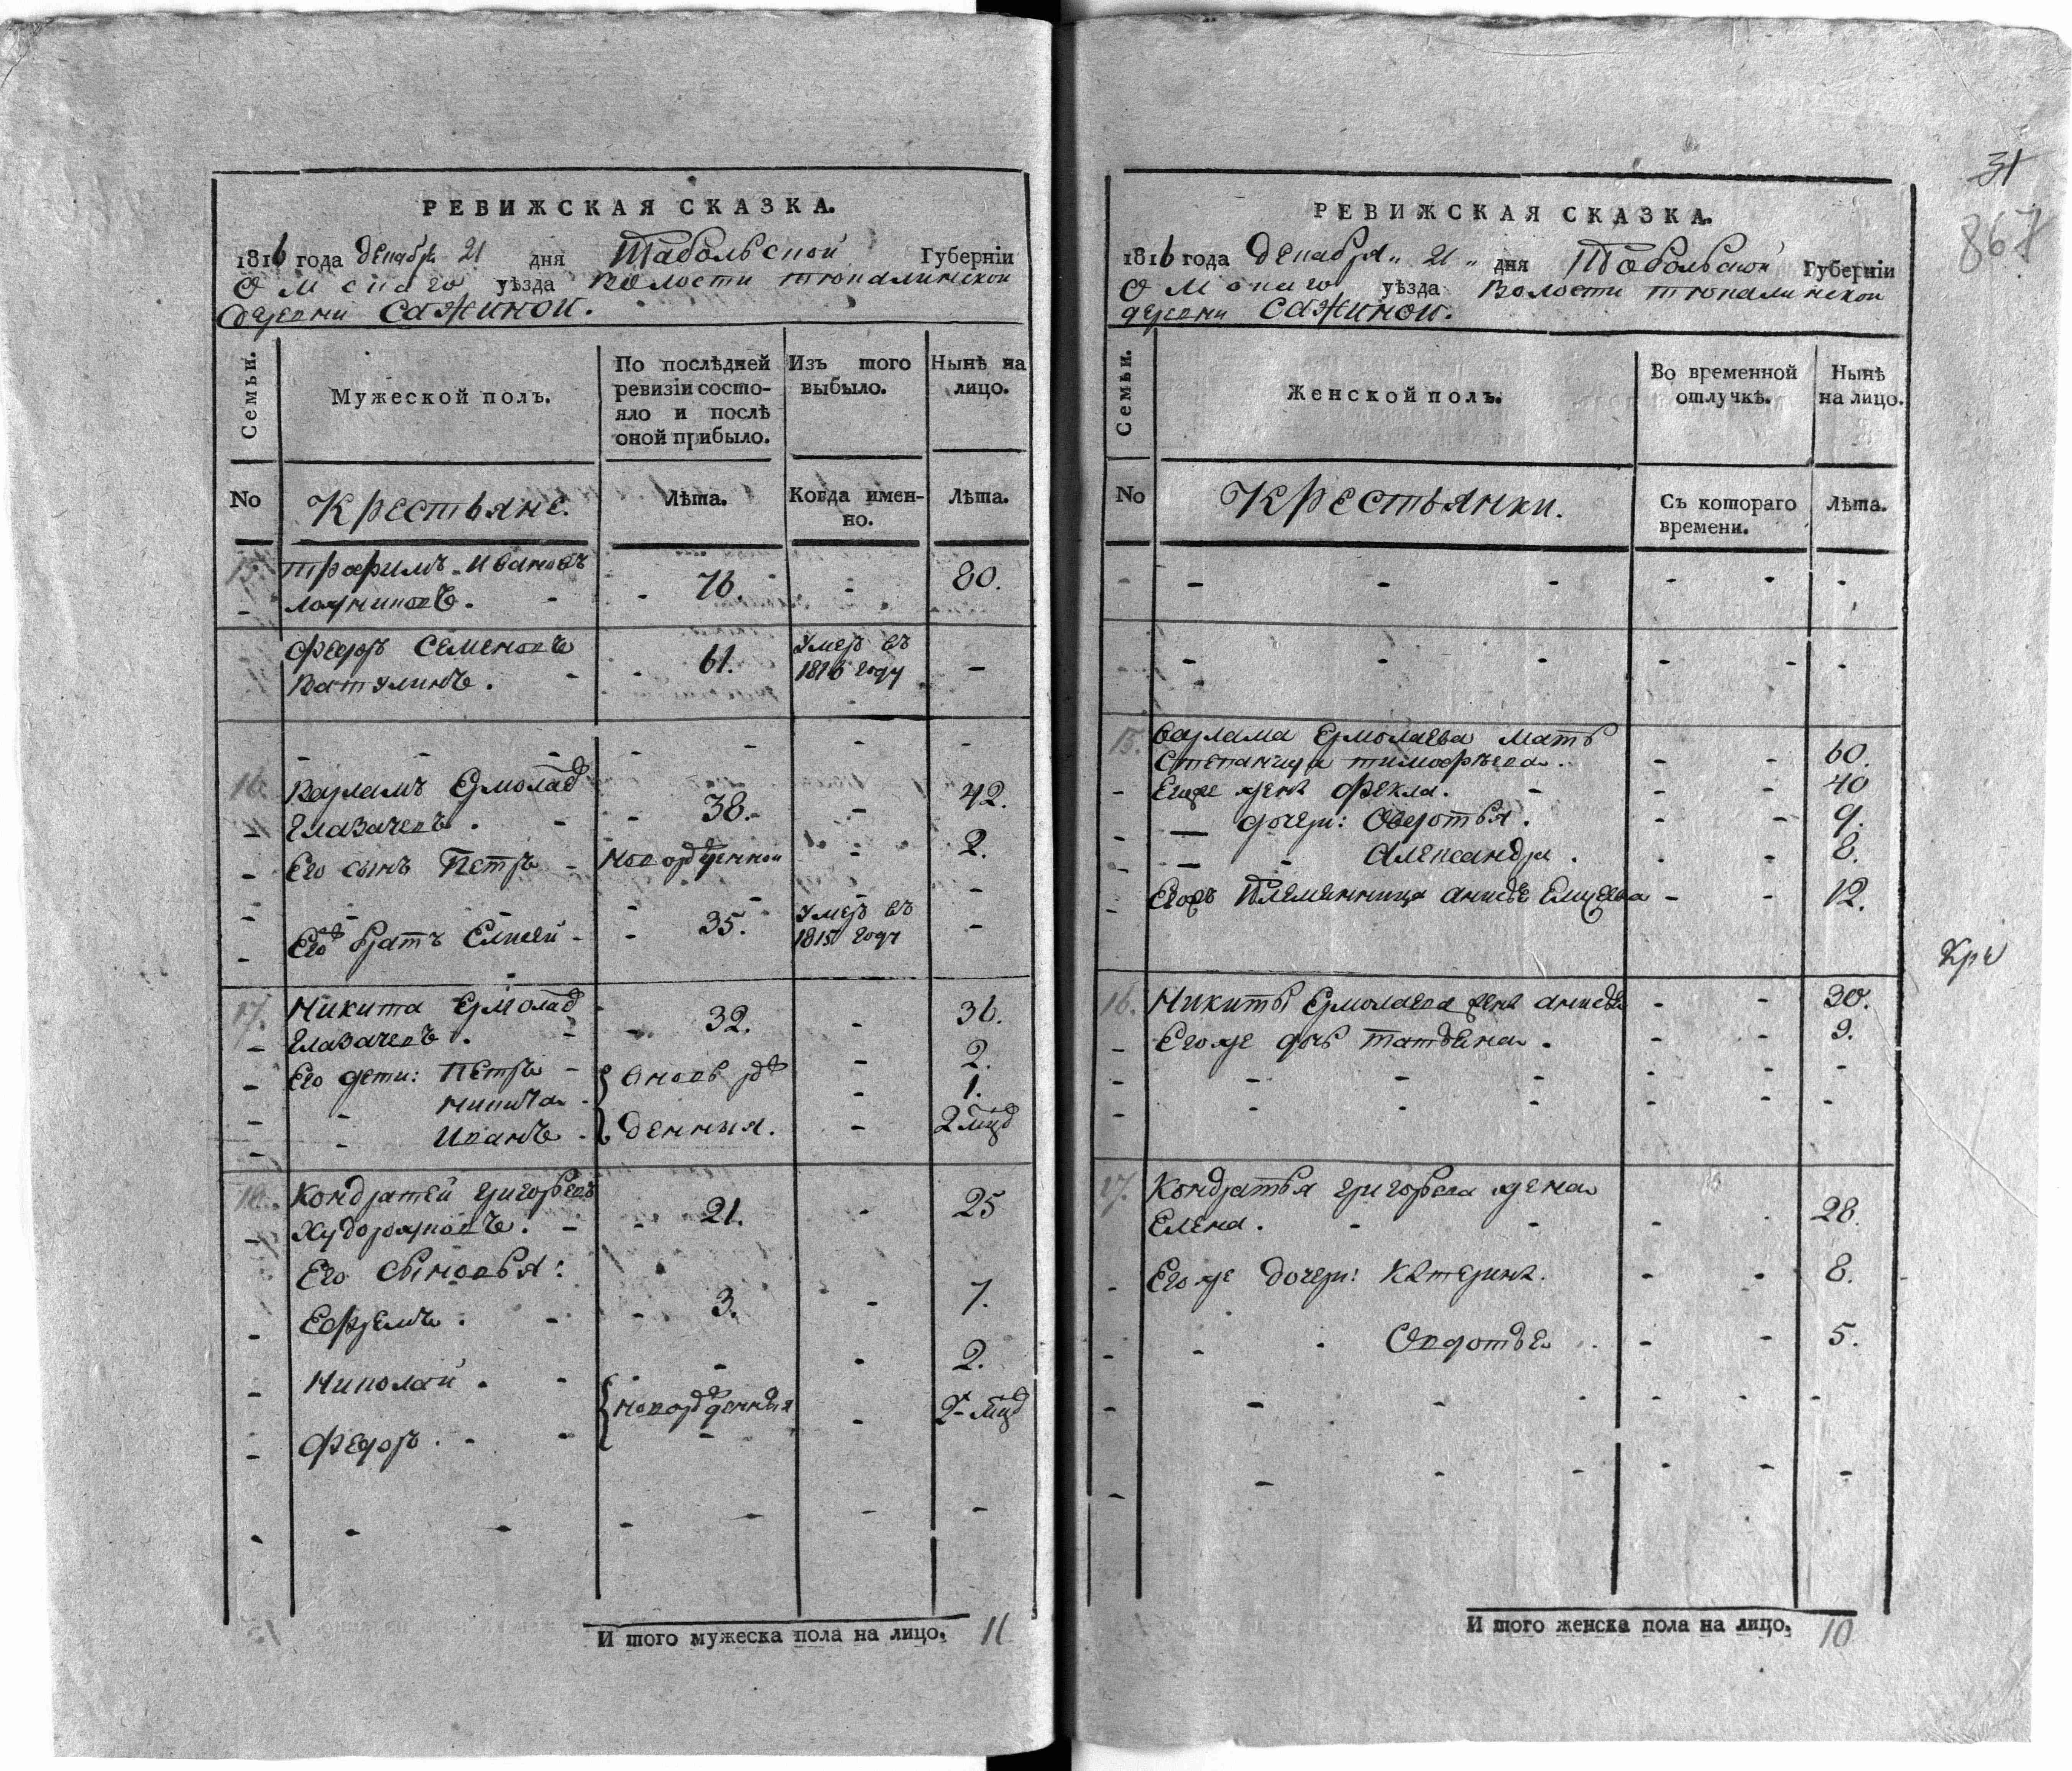 РЕВИЖСКАЯ СКАЗКА.
1816 года декабря 21 дня Тобольской Губерніи
Омскаго уѣзда Волости тюкалинской
деревни Сажиной.
Семьи.
Мужеской полъ.
По послѣдней ревизіи состояло и послѣ оной прибыло.
Изъ того выбыло.
Нынѣ на лицо.
No
Крестьяне.
Лѣта.
Когда именно.
Лѣта.
15. Трофимъ Ивановъ
76. 80.
Федоръ Семеновъ
Ватулинъ. 61. Умеръ въ 1816 году
16. Варламъ Ермолаев
Глазачевъ. 38. 42.
Его сынъ Петръ новорожденной 2.
Его брать Елисей 35. Умеръ въ 1815 году
17. Никита Ермолаев
Глазачевъ. 32. 36.
Его дети: Петръ 2.
Никита 1.
Иванъ 2 мцов
вновь рож
денныя.
18. Кондратей Григорьевъ
Худорожковъ. 21. 25
Его Сыновья:
Ефремъ. 3. 7.
Николай. 2.
Федоръ. новорожденныя 2 мцов
И того мужеска пола на лицо. 11
31
867
РЕВИЖСКАЯ СКАЗКА.
1816 года декабря 21 дня Тобольской Губерніи
Омскаго уѣзда Волости тюкалинской
деревни Сажиной.
Семьи.
Женской полъ.
Во временной отлучкѣ.
Нынѣ на лицо.
No
Крестьянки.
Съ котораго времени.
Лѣта.
15. Варлама Ермолаева мать
Степанида тимофѣева. 60.
Егоже жена Фекла. 40
дочери: Овдотья. 9.
Александра. 8.
Егожъ Племянница анисья Елисѣева 12.
Кре
16. Никиты Ермолаева жена анисья 30.
Егоже дочь татьяна. 9.
17. Кондратья григорьева жена
Елена. 28.
Егоже дочери: Катерина. 8.
Овдотья 5.
И того женска пола на лицо. 10